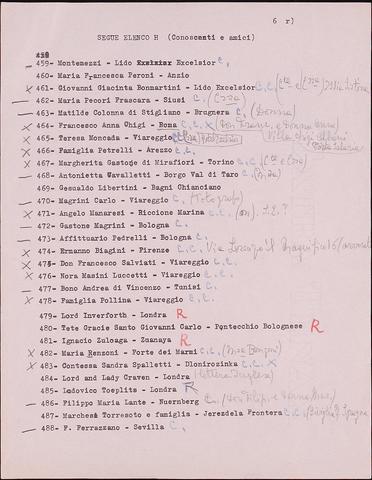 6 r)
SEGUE ELENCO H (Conoscenti e amici)
459- Montemezzi - Lido Excelsior C.
460- Maria Francesca Peroni - Anzio
X 461- Giovanni Giacinta Bonmartini - Lido Excelsior C.C.
462- Maria Pecori Frascara - Siusi C.
463- Matilde Colonna di Stigliano - Brugnera C. (Donna)
X 464- Francesco Anna Chigi - Roma C.C. X
X 465- Teresa Moncada - Viareggio
X 466- Famiglia Petrelli - Arezzo C.C.
X 467- Margherita Gastone di Mirafiori - Torino C.C.
468- Antonietta Wavalletti - Borgo Val di Taro C.
469- Gesualdo Libertini - Bagni Chianciano
470- Magrini Carlo - Viareggio
X 471- Angelo Manaresi - Riccione Marina C.C.
472- Gastone Magrini - Bologna C.
473- Affittuario Pedrelli - Bologna C.
X 474- Ermanno Biagini - Firenze C.C. Via Lorenzo Il Magnifico
X 475- Don Francesco Salviati - Viareggio C.C.
X 476- Nora Masini Luccetti - Viareggio C.C.
477- Bono Andrea di Vincenzo - Tunisi C.
X 478- Famiglia Pollina - Viareggio C.C.
479- Lord Inverforth - Londra R
480- Tete Gracie Santo Giovanni Carlo - Pontecchio Bolognese R
481- Ignacio Zuloaga - Zuanaya R
X 482- Maria Renzoni - Forte dei Marmi C.C.
X 483- Contessa Sandra Spalletti - Dlonirozinka C.C. X
484- Lord and Lady Craven - Londra (lettera inglese)
485- Lodovico Toeplits - Londra R
486- Filippo Maria Lante - Nuernberg C.
487- Marchesi Torresoto e famiglia - Jerezdela Frontera C.C.
488- F. Ferrazzano - Sevilla C.